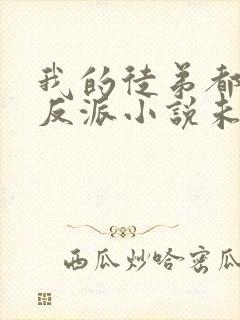 我的徒弟都
反派小說未
西瓜炒哈密瓜